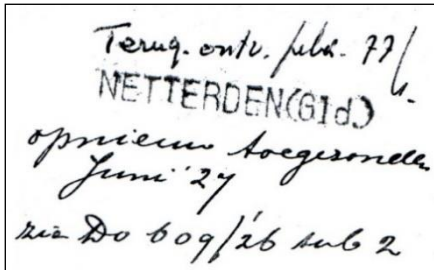 Terug. ontv. febr. 27/
NETTERDEN (Gld.)
opnieuw toegezonden
Juni '27
zie Do 609/26 sub 2